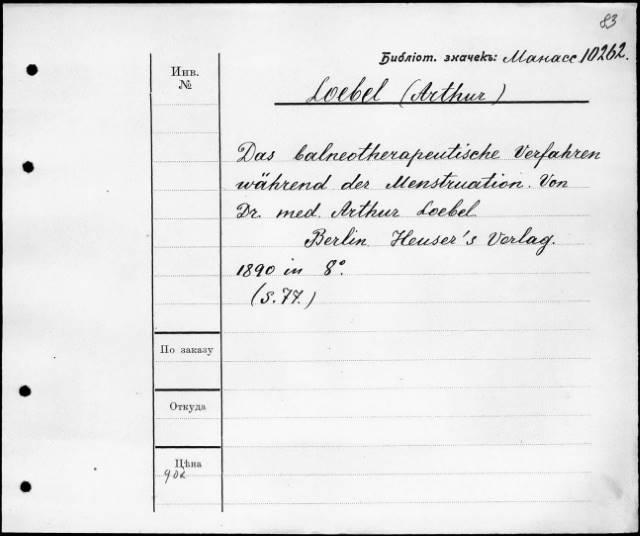 83
Библіот. значекъ: Манасс 10262.
Инв.
№
Loebel (Arthur)
Das balneotherapeutische Verfahren
während der Menstruation. Von
Dr. med. Arthur Loebel
Berlin Heuser's Verlag.
1890 in 8°.
(S. 77.)
По заказу
Откуда
Цѣна